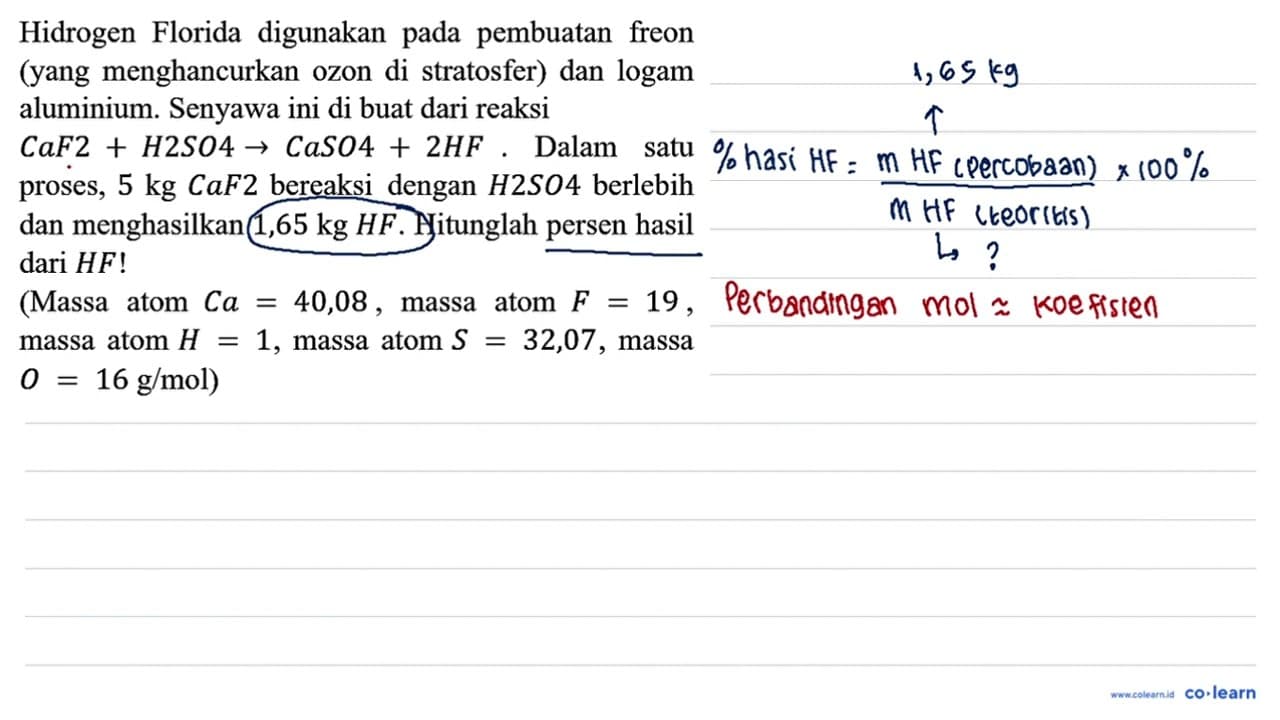 Hidrogen Florida digunakan pada pembuatan freon
(yang menghancurkan ozon di stratosfer) dan logam
aluminium. Senyawa ini di buat dari reaksi
CaF2 + H2SO4 → CaSO4 + 2HF . Dalam satu
proses, 5 kg CaF2 bereaksi dengan H2SO4 berlebih
dan menghasilkan 1,65 kg HF. Hitunglah persen hasil
dari HF!
(Massa atom Ca = 40,08, massa atom F = 19,
massa atom H = 1, massa atom S = 32,07, massa
O = 16 g/mol)
1,65 kg
↑
% hasi HF = m HF (percobaan) x 100%
m HF (teoritis)
↳ ?
Perbandingan mol ≈ koefisien
www.colearn.id co·learn